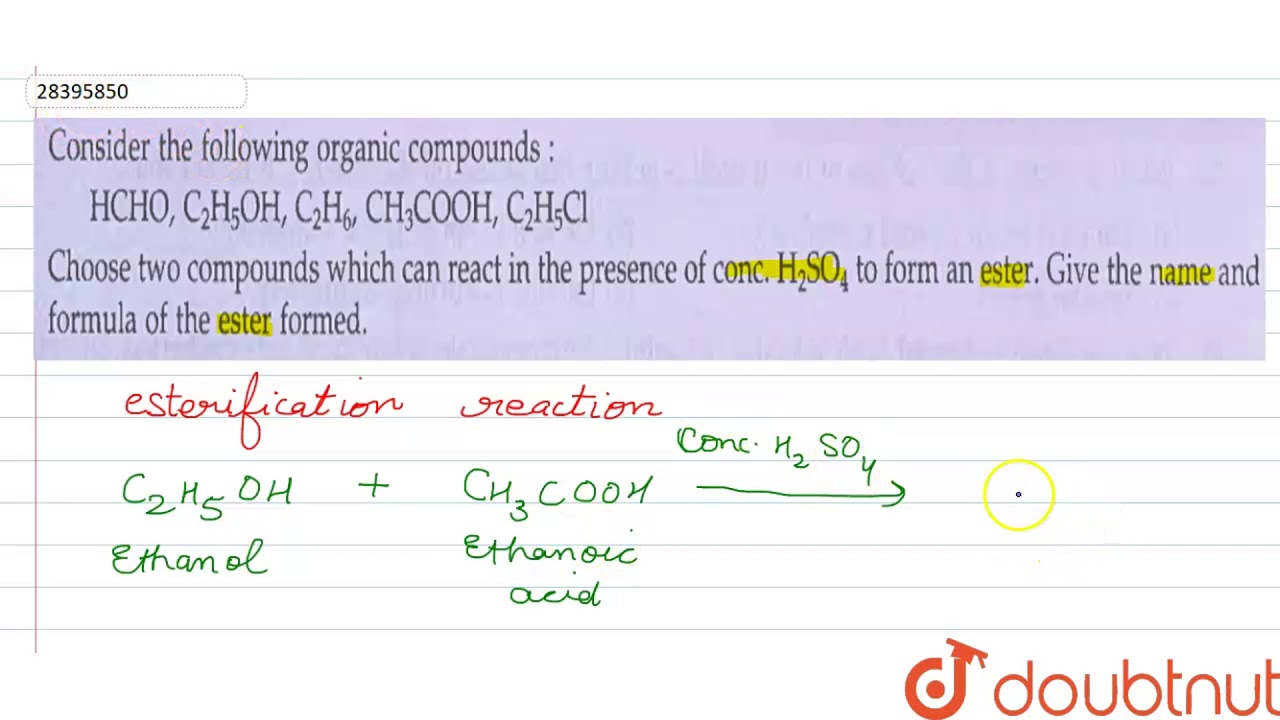 28395850
Consider the following organic compounds :
HCHO, C₂H₅OH, C₂H₆, CH₃COOH, C₂H₅Cl
Choose two compounds which can react in the presence of conc. H₂SO₄ to form an ester. Give the name and
formula of the ester formed.
esterification reaction
Conc. H₂SO₄
C₂H₅OH + CH₃COOH
Ethanol Ethanoic
acid
doubtnut